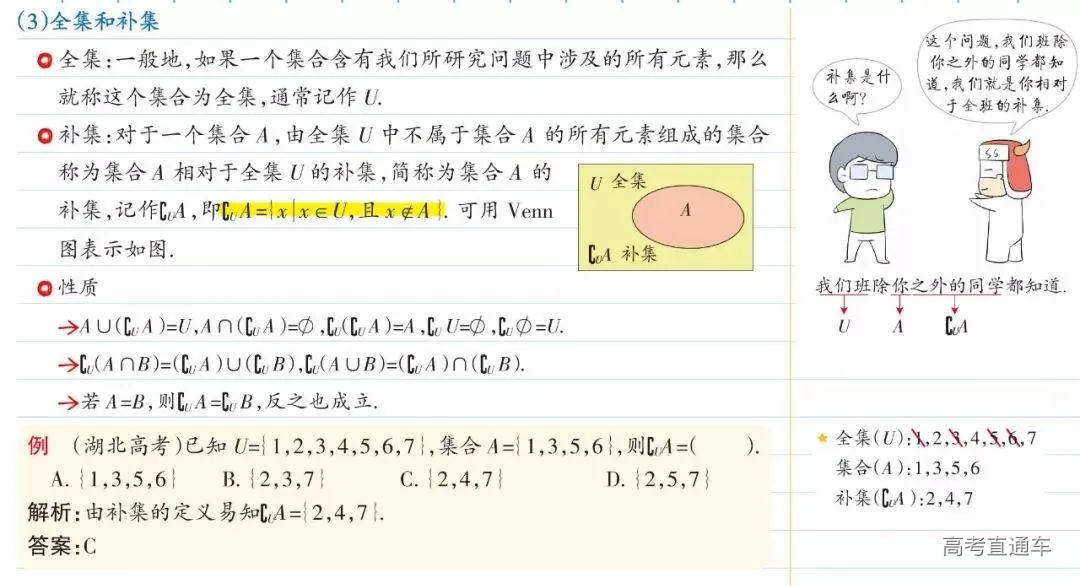 (3)全集和补集
全集:一般地,如果一个集合含有我们所研究问题中涉及的所有元素,那么
就称这个集合为全集,通常记作 U.
补集:对于一个集合 A,由全集 U 中不属于集合 A 的所有元素组成的集合
称为集合 A 相对于全集 U 的补集,简称为集合 A 的
补集,记作∁UA,即∁UA={x|x∈U,且 x∉A}. 可用 Venn
图表示如图.
U 全集
A
∁UA 补集
性质
→A∪(∁UA)=U,A∩(∁UA)=∅,∁U(∁UA)=A,∁UU=∅,∁U∅=U.
→∁U(A∩B)=(∁UA)∪(∁UB),∁U(A∪B)=(∁UA)∩(∁UB).
→若 A=B,则∁UA=∁UB,反之也成立.
例 (湖北高考)已知 U={1,2,3,4,5,6,7},集合 A={1,3,5,6},则∁UA=( ).
A. {1,3,5,6} B. {2,3,7} C. {2,4,7} D. {2,5,7}
解析:由补集的定义易知∁UA={2,4,7}.
答案:C
补集是什
么啊?
这个问题,我们班除
你之外的同学都知
道,我们就是你相对
于全班的补集.
我们班除你之外的同学都知道.
U A ∁UA
全集(U):1,2,3,4,5,6,7
集合(A):1,3,5,6
补集(∁UA):2,4,7
高考直通车